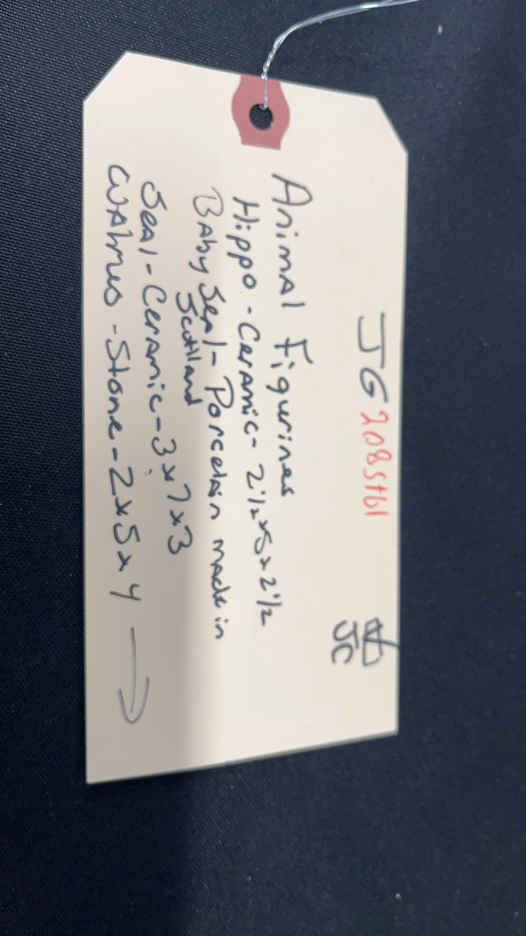 JG
JC
Animal Figurines
Hippo - Ceramic - 2 1/2 x 5 x 2 1/2
Baby Seal - Porcelain made in
Scotland
Seal - Ceramic - 3 x 7 x 3
Walrus - Stone - 2 x 5 x 4 →